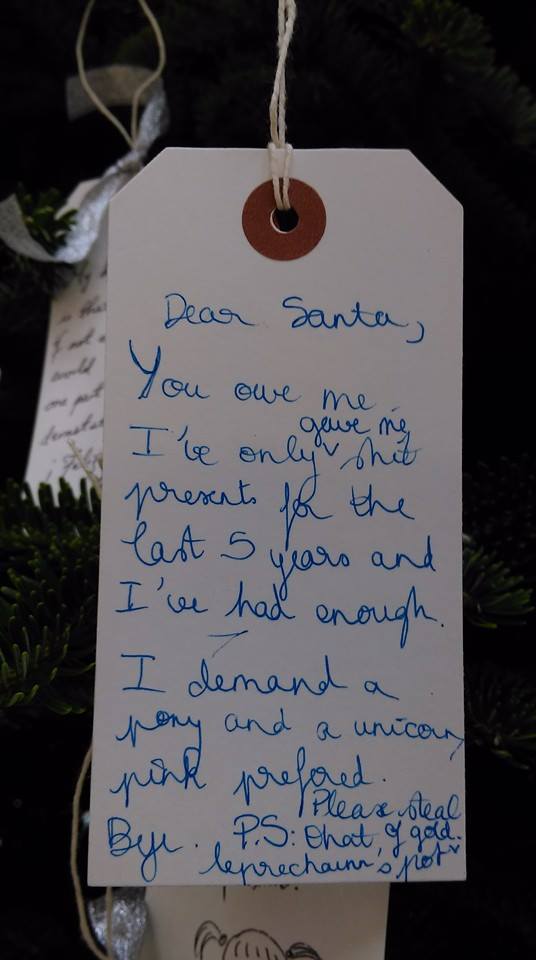 Dear Santa,
You owe me
gave me
I've only ˅ shit
presents for the
last 5 years and
I've had enough.
I demand a
pony and a unicorn
pink prefered.
Please steal
Bye. P.S: that, of gold.
leprechaunn's pot ˅